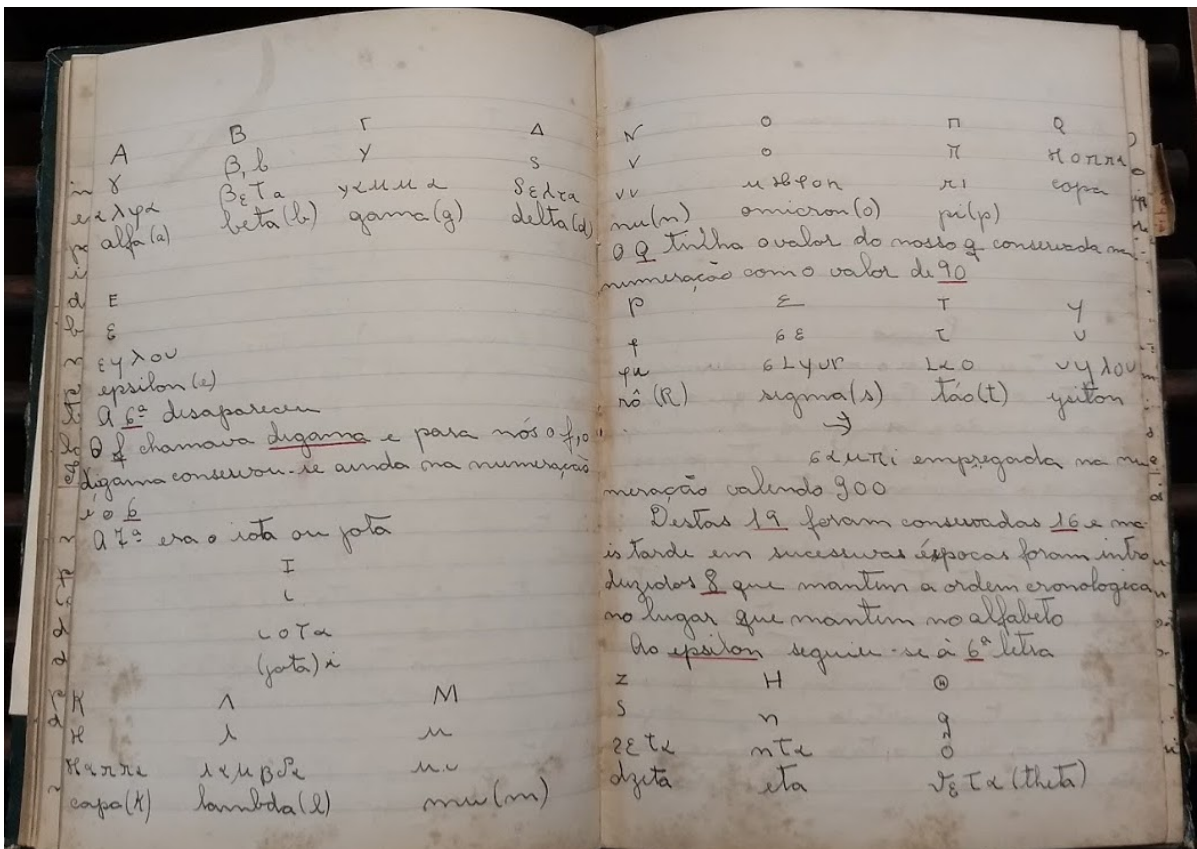 A B Γ Δ
γ β, b γ s
αλγα βεTa γαμμα δελτα
alfa(a) beta(b) gama(g) delta(d)
E
ε
εyλου
epsilon(e)
A 6ª desapareceu
O f chamava digama e para nós o f, o
digama conservou-se ainda na numeração
e o 6
A 7ª era o iota ou jota
I
ι
ιοΤα
(jota) i
K Λ M
κ λ μ
καππα λαμβδα μυ
capa(K) lambda(l) mu(m)
N O Π Q
ν ο π κοππα
νυ πι copa
nu(n) omicron(o) pi(p)
O Q tinha o valor do nosso q conservada na
numeração como o valor de 90
P Σ T Y
ρ σε τ υ
υyλου
rô (R) sigma(s) táo(t) ypsilon
→
σαμπi empregada na nu
meração valendo 900
Destas 19 foram conservadas 16 e ma-
is tarde em sucessivas épocas foram intro
duzidas 8 que mantem a ordem cronologica
no lugar que mantem no alfabeto
Ao epsilon seguiu-se à 6ª letra
Z H Θ
S n
ζετα ητα
dzeta eta (theta)